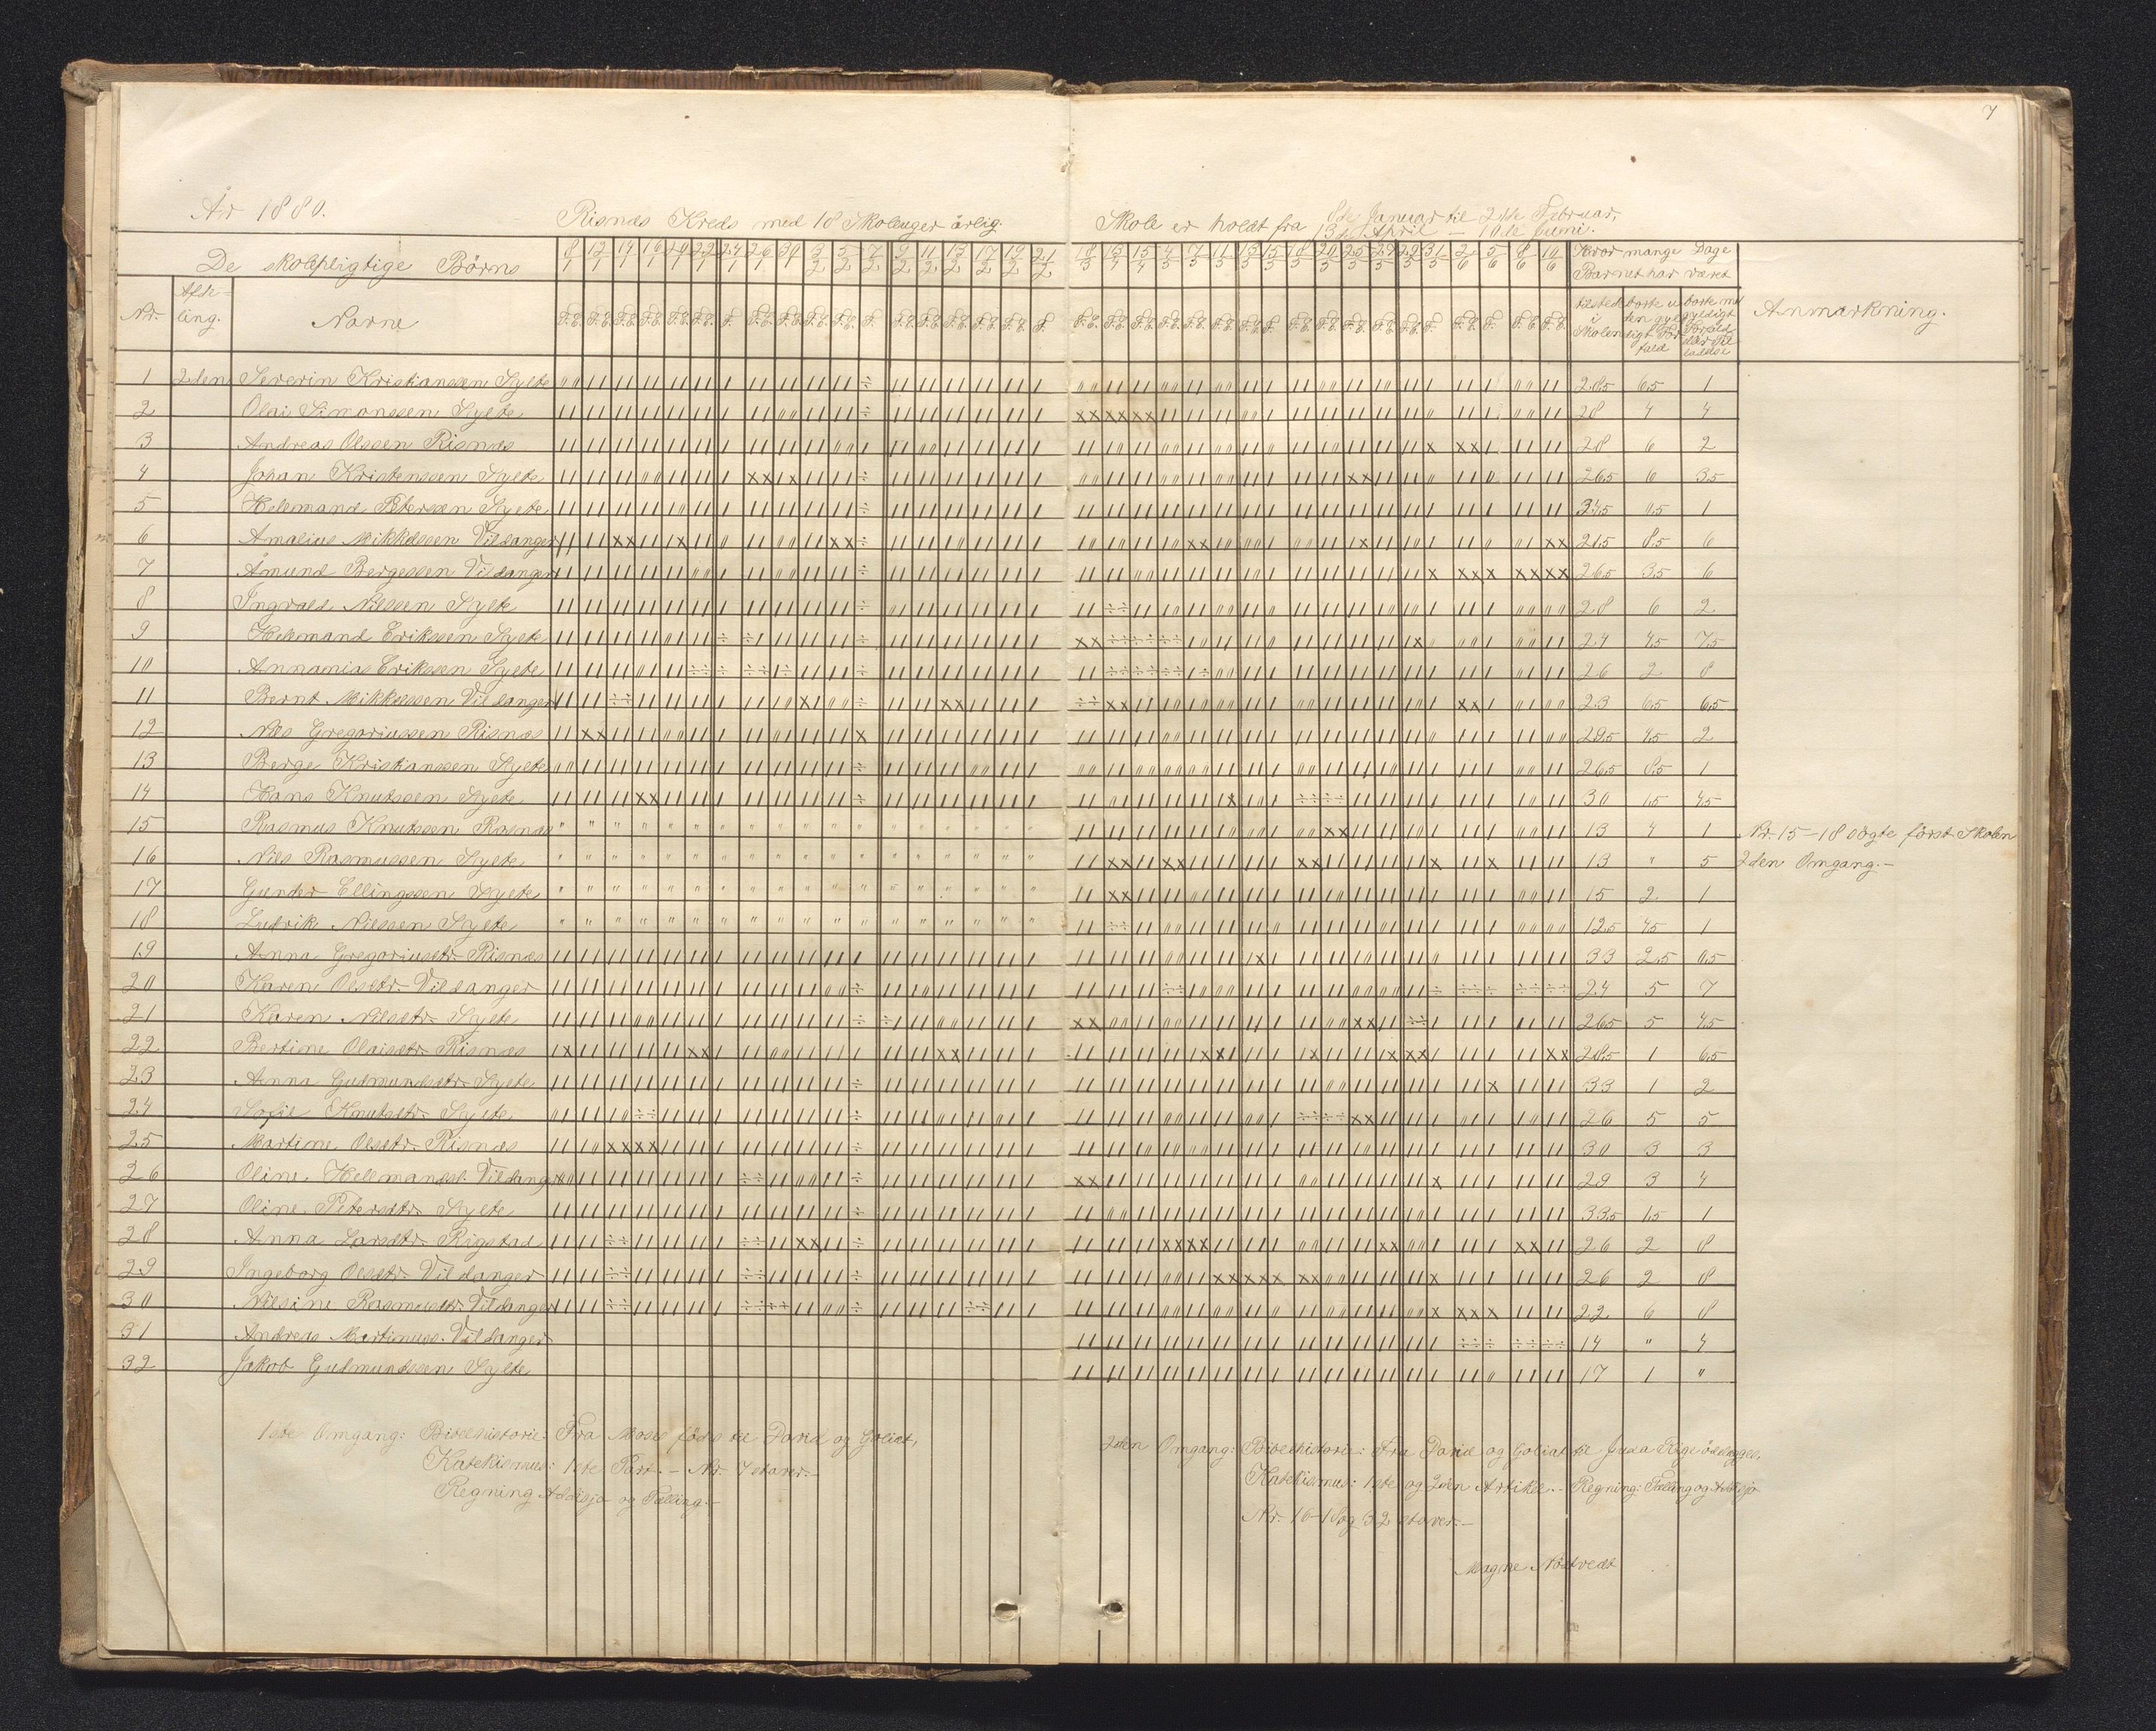 7
År 1880. Risnæs Kreds med 18 Skoleuger årlig.
Skole er holdt fra 8de Januar til 21de Februar,
13de April – 10de Juni.
De skolepligtige Børns
Nr. Afde-ling. Navne
Hvor mange Dage
Barnet har været
tilstede i Skolen
borte uden gyldigt Forfald
borte med gyldigt Forfald eller Tilladelse
Anmærkning.
1 2den Severin Kristianssen Hylte 28,5 6,5 1
2 Olai Simonssen Hylte 28 4 4
3 Andreas Olssen Risnæs 28 6 2
4 Johan Kristenssen Hylte 26,5 6 3,5
5 Hellemand Peterssen Hylte 34,5 0,5 1
6 Amalius Mikkelssen Vildanger 21,5 8,5 6
7 Åmund Bergessen Vildanger 26,5 3,5 6
8 Ingvald Nilssen Hylte 28 6 2
9 Hellemand Erikssen Hylte 24 4,5 7,5
10 Annanias Erikssen Hylte 26 2 8
11 Bernt Mikkelssen Vildanger 23 6,5 6,5
12 Nils Gregoriussen Risnæs 29,5 4,5 2
13 Berge Kristianssen Hylte 26,5 8,5 1
14 Hans Knutssen Hylte 30 1,5 4,5
15 Rasmus Knutssen Risnæs 13 4 1 Nr. 15–18 søgte først Skolen
16 Nils Rasmussen Hylte 13 " 5 2den Omgang.–
17 Gunder Ellingssen Hylte 15 2 1
18 Ludvik Nilssen Hylte 12,5 4,5 1
19 Anna Gregoriusdtr. Risnæs 33 2,5 0,5
20 Karen Olsdtr. Vildanger 24 5 7
21 Karen Nilsdtr. Hylte 26,5 5 4,5
22 Bertine Olaisdtr. Risnæs 28,5 1 6,5
23 Anna Gudmundsdtr. Hylte 33 1 2
24 Sofie Knutsdtr. Hylte 26 5 5
25 Martine Olsdtr. Risnæs 30 3 3
26 Oline Hellemandsd. Vildanger 29 3 4
27 Oline Petersdtr. Hylte 33,5 1,5 1
28 Anna Larsdtr. Rigstad 26 2 8
29 Ingeborg Olsdtr. Vildanger 26 2 8
30 Nilsine Rasmusdtr. Vildanger 22 6 8
31 Andreas Martinuss. Vildanger 14 " 4
32 Jakob Gudmundssen Hylte 17 1 "
1ste Omgang: Bibelhistorie: Fra Moses fødes til David og Goliat,
Katekismus: 1ste Part.– Nr. 4 staver.–
Regning Addisjo og Tælling.–
2den Omgang: Bibelhistorie: Fra David og Goliat til Juda Rige ødelægges,
Katekismus: 1ste og 2den Artikel.– Regning: Tælling og Addisjo
Nr. 16–18 og 32 staver.–
Magne Nøstvedt